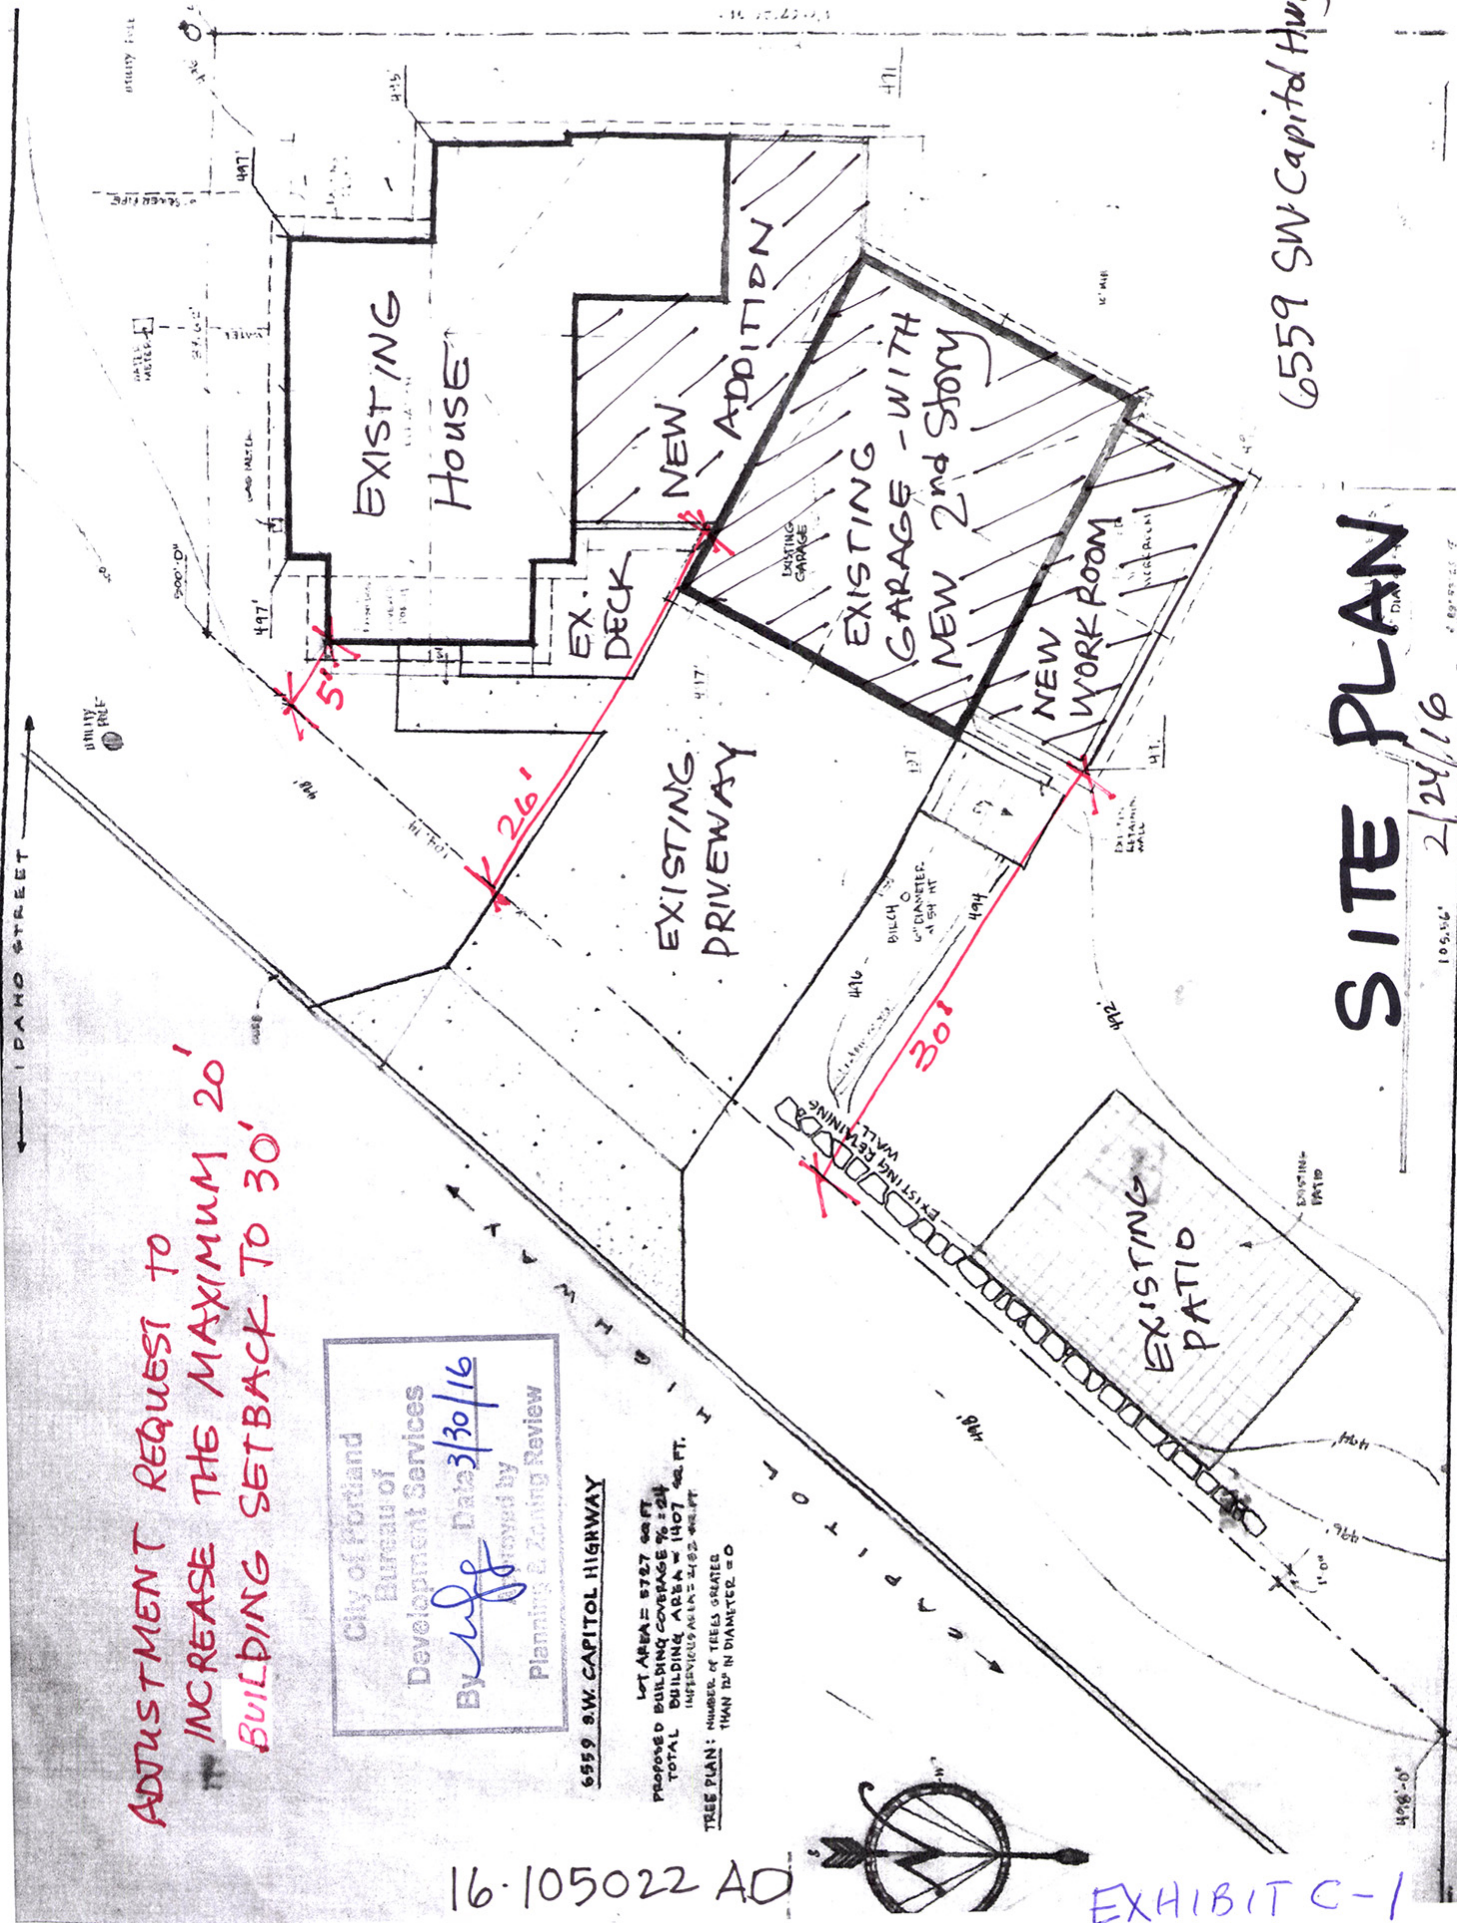 IDAHO STREET
ADJUSTMENT REQUEST TO
INCREASE THE MAXIMUM 20'
BUILDING SETBACK TO 30'
City of Portland
Bureau of
Development Services
By Date 3/30/16
Approved by
Planning & Zoning Review
6559 S.W. CAPITOL HIGHWAY
LOT AREA = 5727 SQ FT.
PROPOSED BUILDING COVERAGE % = 24
TOTAL BUILDING AREA = 1407 SQ. FT.
IMPERVIOUS AREA = 2492 SQ. FT.
TREE PLAN: NUMBER OF TREES GREATER
THAN 12" IN DIAMETER = 0
16-105022 AD
EXHIBIT C-1
CAPITOL HIGHWAY
UTILITY POLE
UTILITY
POLE
CURB
SEWER PIPE
WATER
METER
WATER
GAS METER
500'-0"
497'
497'
495'
491
498'
EXISTING
HOUSE
EX.
DECK
NEW
ADDITION
EXISTING
GARAGE
EXISTING
GARAGE - WITH
NEW 2nd Story
NEW
WORK ROOM
WORK ROOM
5'
26'
30'
EXISTING
DRIVEWAY
BIRCH
6" DIAMETER
496
494
492'
EXISTING RETAINING
WALL
EXISTING
PATIO
EXISTING
PATIO
498'
494'
496'
1'-0"
498'-0"
105.56'
SITE PLAN
2/24/16
6559 SW Capitol Hwy